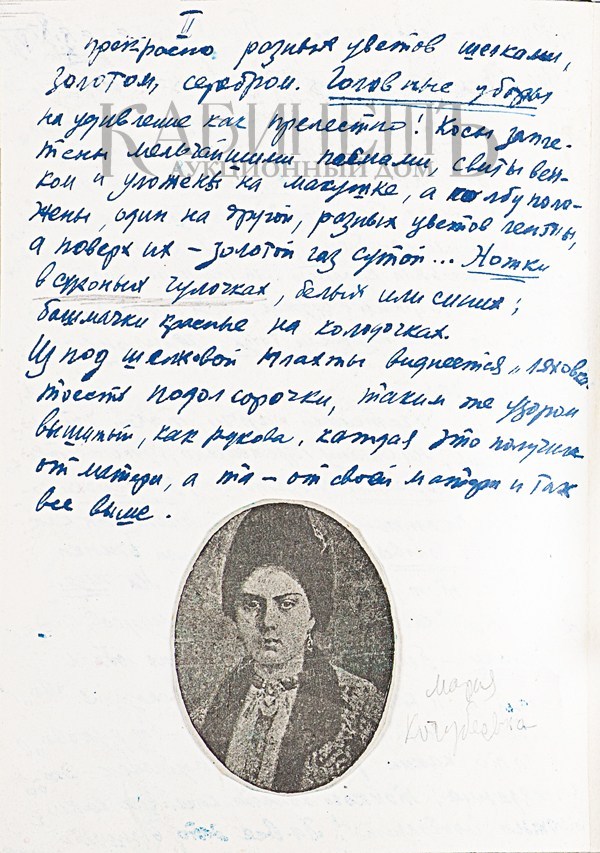 II
прекрасно разных цветов шелками,
золотом, серебром. Головные уборы
на удивление как прелестно! Косы запле-
КАБИНЕТЪ
тены мельчайшими пасмами, свиты вен-
АУКЦИОННЫЙ ДОМ
ком и уложены на макушке, а ко лбу поло-
жены, один на другой, разных цветов ленты,
а поверх их – золотой газ сутой... Ножки
в суконых чулочках, белых или синих;
башмачки красные на колодочках.
Из под шелковой плахты виднеется „ляховка
тоесть подол сорочки, таким же узором
вышитый, как рукова, каждая это получила
от матери, а та – от своей матери и так
все выше.
Мария
Кочубеевна